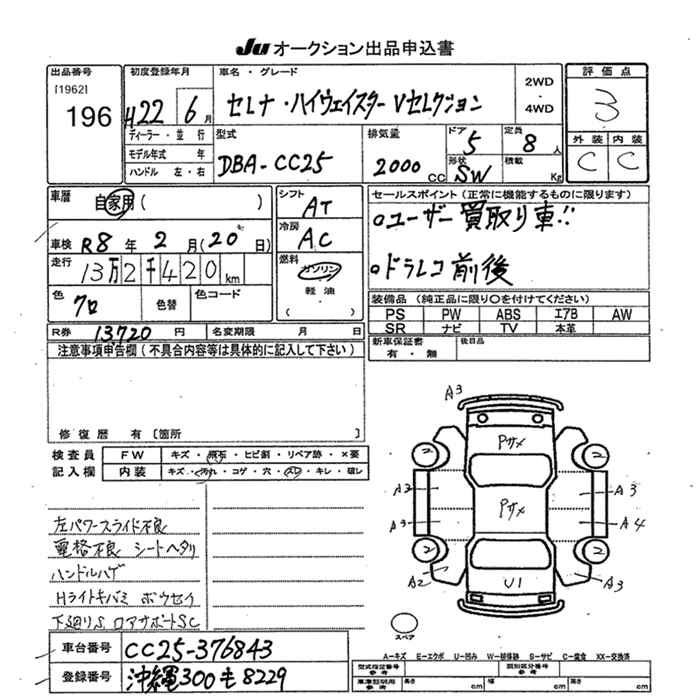 Ju オークション出品申込書
出品番号
[1962]
196
初度登録年月
H22 6月
ディーラー・並行
モデル年式 年
ハンドル 左・右
車名・グレード
セレナ・ハイウェイスターVセレクション
2WD
・
4WD
評価点
3
型式
DBA-CC25
排気量
2000 CC
ドア
5
形状
SW
定員
8人
積載
Kg
外装 内装
C C
車歴
自家用( )
車検 R8年 2月(20日)
走行
13万2千420km
色
クロ
色替
色コード
シフト
AT
冷房
AC
燃料
ガソリン
軽油
( )
セールスポイント(正常に機能するものに限ります)
○ユーザー買取り車!!
○ドラレコ前後
装備品(純正品に限り○を付けてください)
PS PW ABS エアB AW
SR ナビ TV 本革
R券 13,720円
名変期限 月 日
新車保証書
有・無
後日品
注意事項申告欄(不具合内容等は具体的に記入して下さい)
修復歴 有[箇所 ]
検査員
記入欄
FW キズ・飛石・ヒビ割・リペア跡・×要
内装 キズ・汚れ・コゲ・穴・スレ・キレ・破レ
左パワースライド不良
電格不良 シートヘタリ
ハンドルハゲ
Hライトキバミ ボウセイ
下廻りS ロアサポートSC
A3
Pサメ
2 2
A2 A3
Pサメ
A3 A4
2 2
A2 U1 A3
スペア
車台番号 CC25-376843
登録番号 沖縄300も8229
A-キズ E-エクボ U-凹み W-補修跡 S-サビ C-腐食 XX-交換済
型式指定番号
参考
類別区分番号
参考
車庫証明用
参考
長さ cm 幅 cm 高さ cm